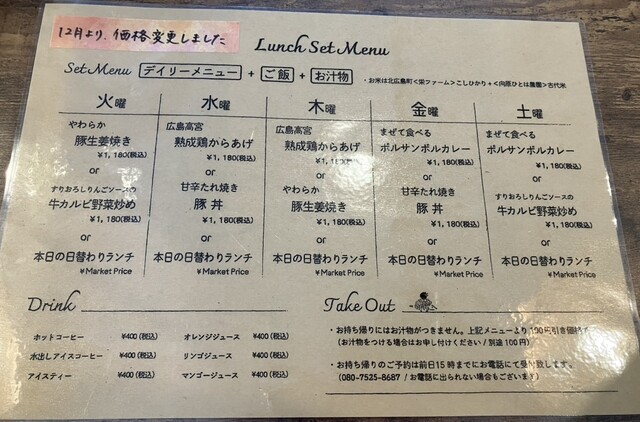 12月より、価格変更しました
Lunch Set Menu
Set Menu デイリーメニュー + ご飯 + お汁物
・お米は北広島町<栄ファーム>こしひかり+<向原ひとは農園>古代米
火曜 水曜 木曜 金曜 土曜
やわらか
豚生姜焼き
¥1,180(税込)
or
すりおろしりんごソースの
牛カルビ野菜炒め
¥1,180(税込)
or
本日の日替わりランチ
¥Market Price
広島高宮
熟成鶏からあげ
¥1,180(税込)
or
甘辛たれ焼き
豚丼
¥1,180(税込)
or
本日の日替わりランチ
¥Market Price
広島高宮
熟成鶏からあげ
¥1,180(税込)
or
やわらか
豚生姜焼き
¥1,180(税込)
or
本日の日替わりランチ
¥Market Price
まぜて食べる
ポルサンポルカレー
¥1,180(税込)
or
甘辛たれ焼き
豚丼
¥1,180(税込)
or
本日の日替わりランチ
¥Market Price
まぜて食べる
ポルサンポルカレー
¥1,180(税込)
or
すりおろしりんごソースの
牛カルビ野菜炒め
¥1,180(税込)
or
本日の日替わりランチ
¥Market Price
Drink
ホットコーヒー ¥400(税込)
水出しアイスコーヒー ¥400(税込)
アイスティー ¥400(税込)
オレンジジュース ¥400(税込)
リンゴジュース ¥400(税込)
マンゴージュース ¥400(税込)
Take Out
・お持ち帰りにはお汁物がつきません。上記メニューより100円引き価格
(お汁物をつける場合はお申し付けください/別途100円)
・お持ち帰りのご予約は前日15時までにお電話にて受付致します。
(080-7525-8687 / お電話に出られない場合もございます)